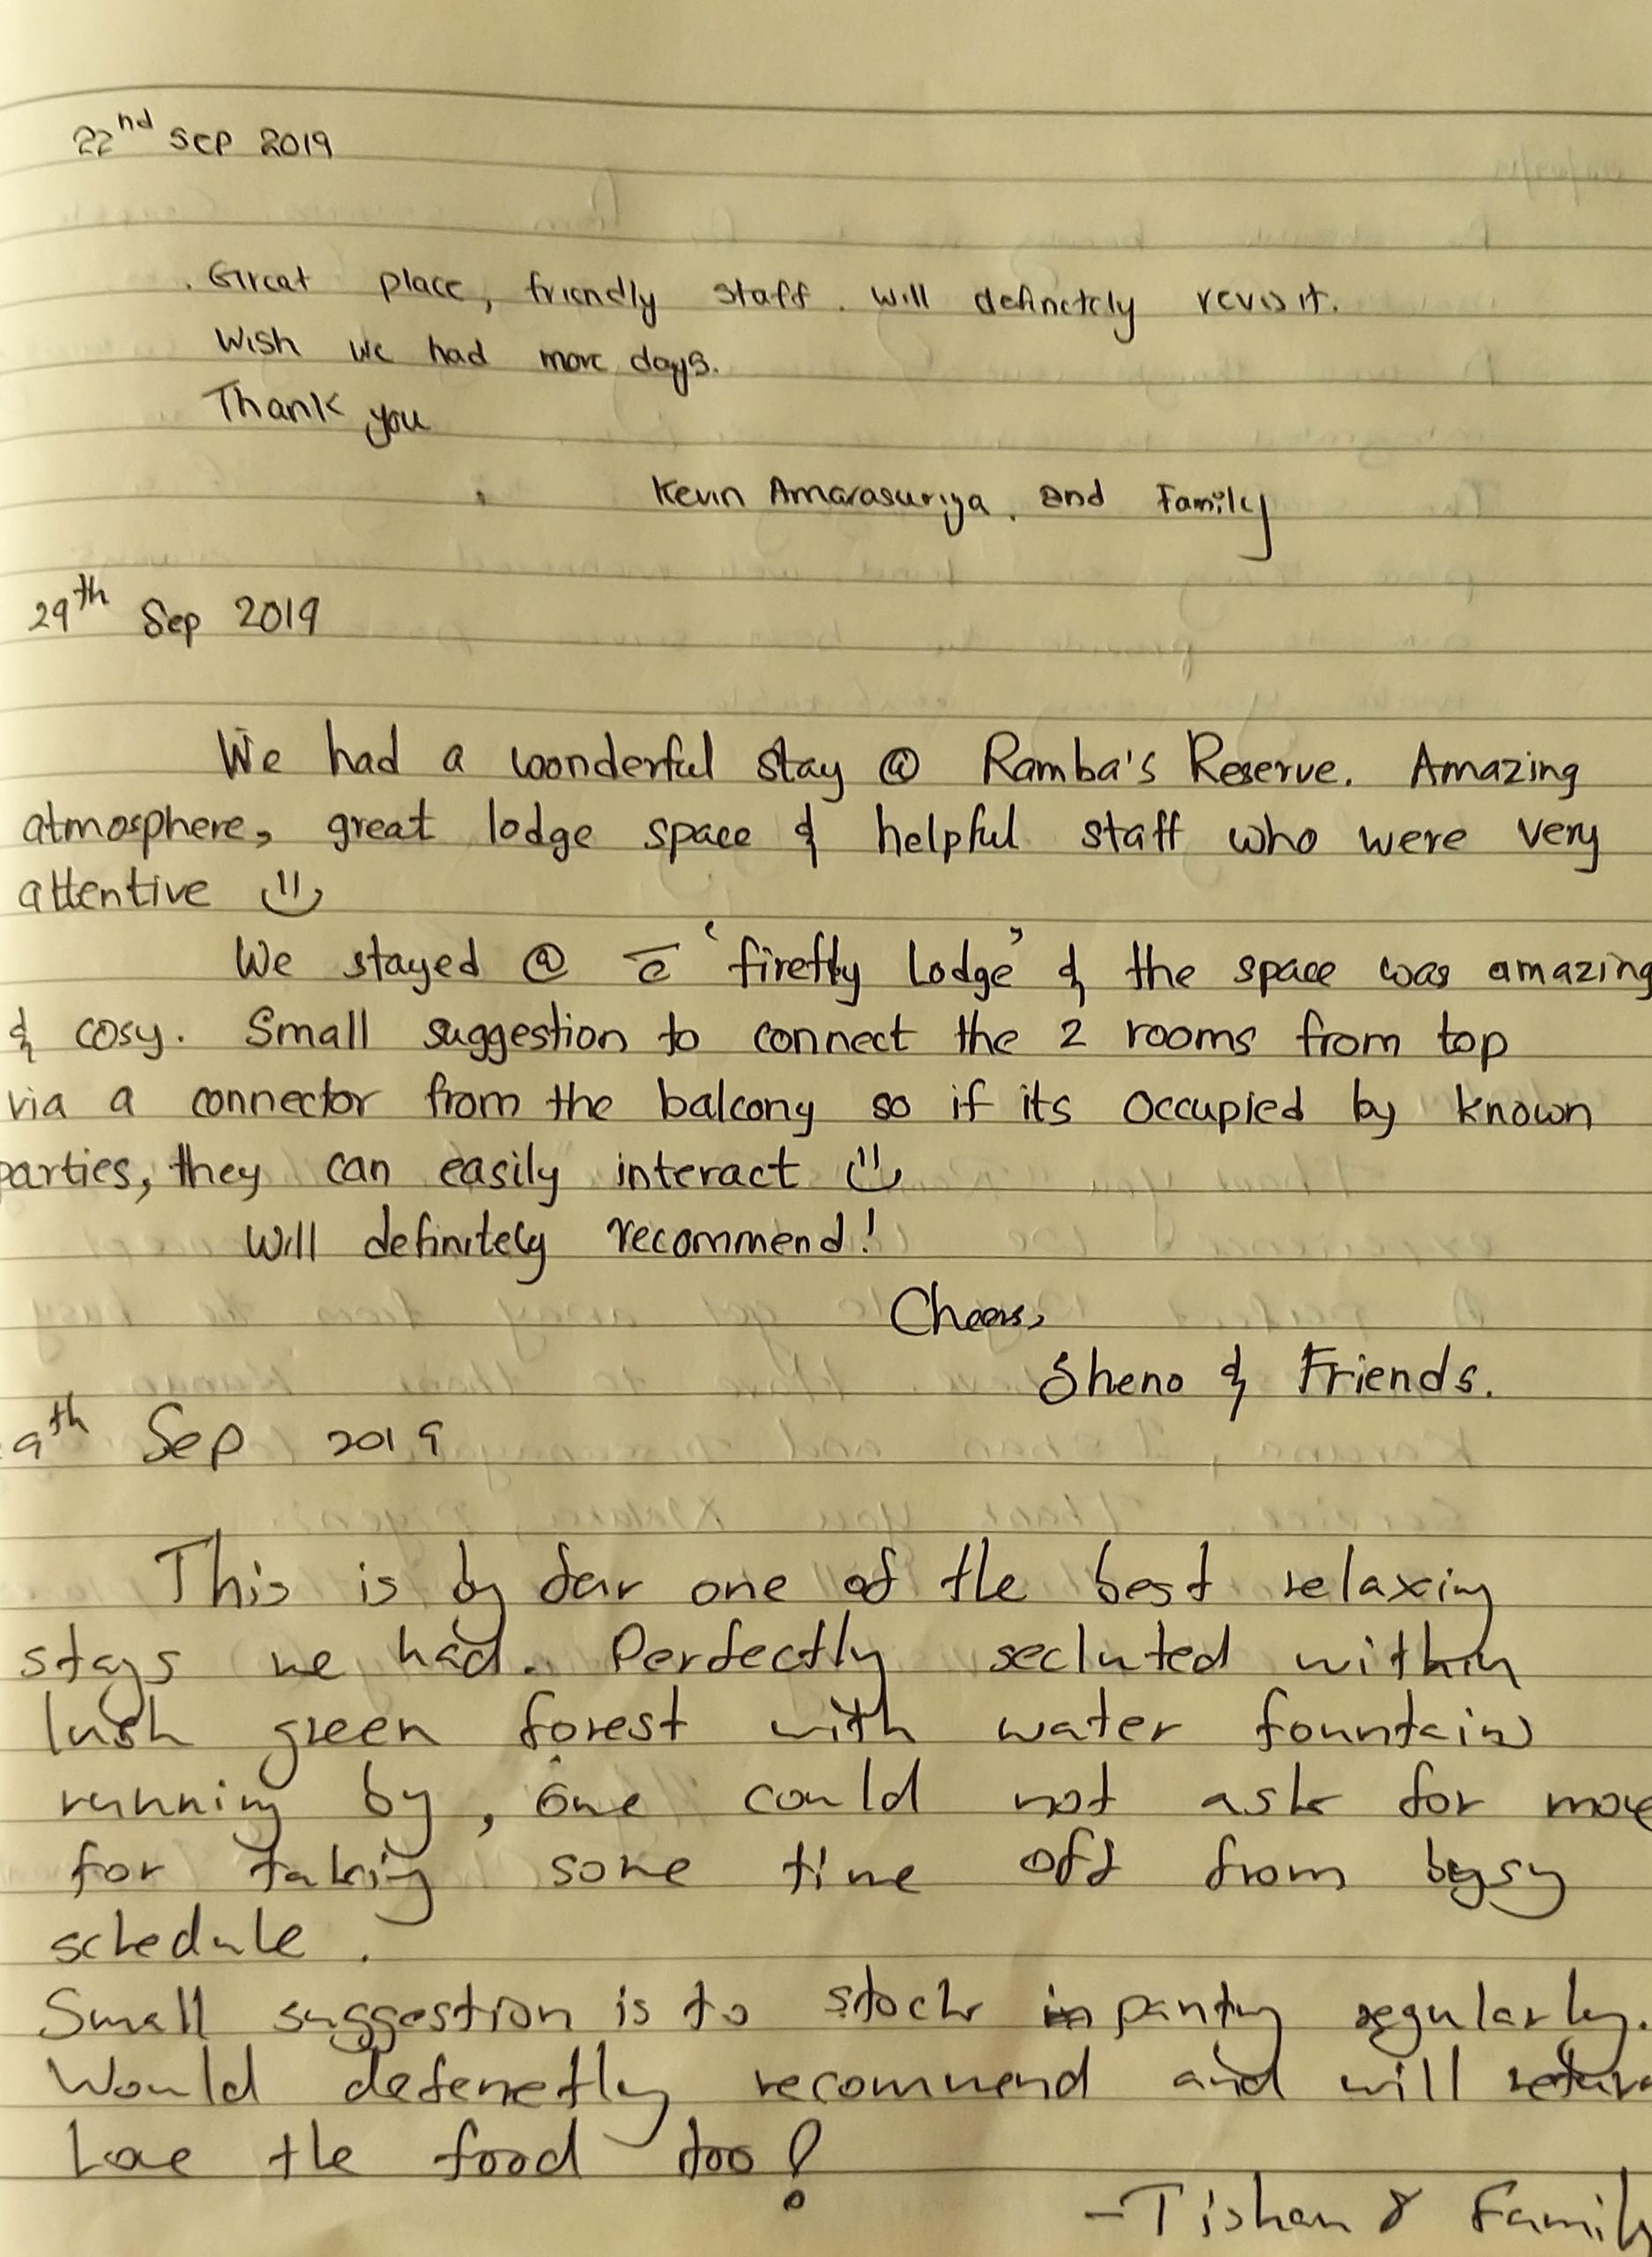 22nd Sep 2019
Great place, friendly staff. Will definetely revisit.
Wish we had more days.
Thank you
Kevin Amarasuriya. and Family
29th Sep 2019
We had a wonderful stay @ Ramba's Reserve. Amazing
atmosphere, great lodge space & helpful staff who were very
attentive
We stayed @ 'firefly Lodge' & the space was amazing
& cosy. Small suggestion to connect the 2 rooms from top
via a connector from the balcony so if its occupied by known
parties, they can easily interact
Will definitely recommend!
Cheers,
Sheno & Friends.
9th Sep 2019
This is by far one of the best relaxing
stays we had. Perfectly secluted within
lush green forest with water fountains
running by, one could not ask for more
for taking some time off from busy
schedule.
Small suggestion is to stock pantry regularly.
Would defenetly recommend and will return
Love the food too!
- Tishan & Family